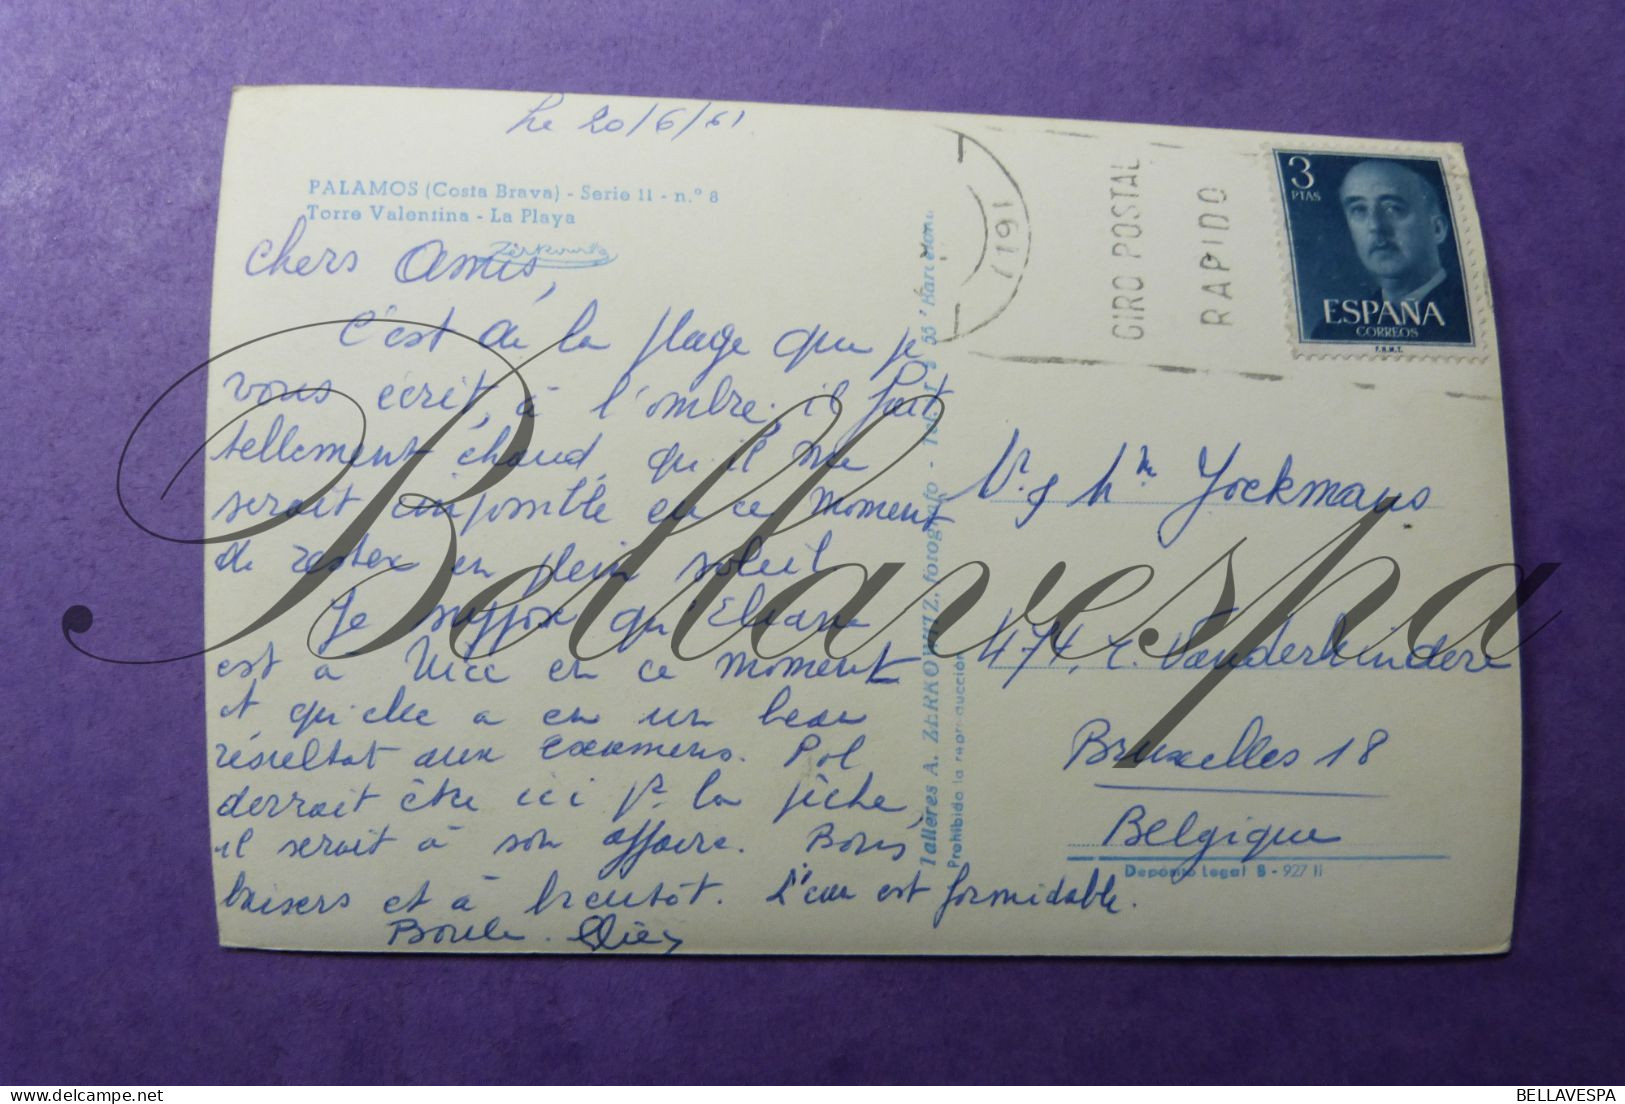 Le 20/6/61
PALAMOS (Costa Brava) - Serie II - n.º 8
Torre Valentina - La Playa
Zerkowitz
Chers Amis,
C'est de la plage que je
vous écrit, à l'ombre, il fait
tellement chaud, qu'il me
serait impossible en ce moment
de rester en plein soleil
Je suppose qu'Eliane
est à Nice en ce moment
et qu'elle a eu un beau
résultat aux examens. Pol
devrait être ici pr la pêche,
il serait à son affaire. Bons
baisers et à bientôt. L'eau est formidable.
Boule.
Talleres A. ZERKOWITZ, fotógrafo - Barcelona
Prohibida la reproducción
1961
GIRO POSTAL
RAPIDO
3
PTAS
ESPAÑA
CORREOS
F.N.M.T.
Jockmans
474, r. Vanderkindere
Bruxelles 18
Belgique
Depósito Legal B - 927 II
Bellavespa
BELLAVESPA